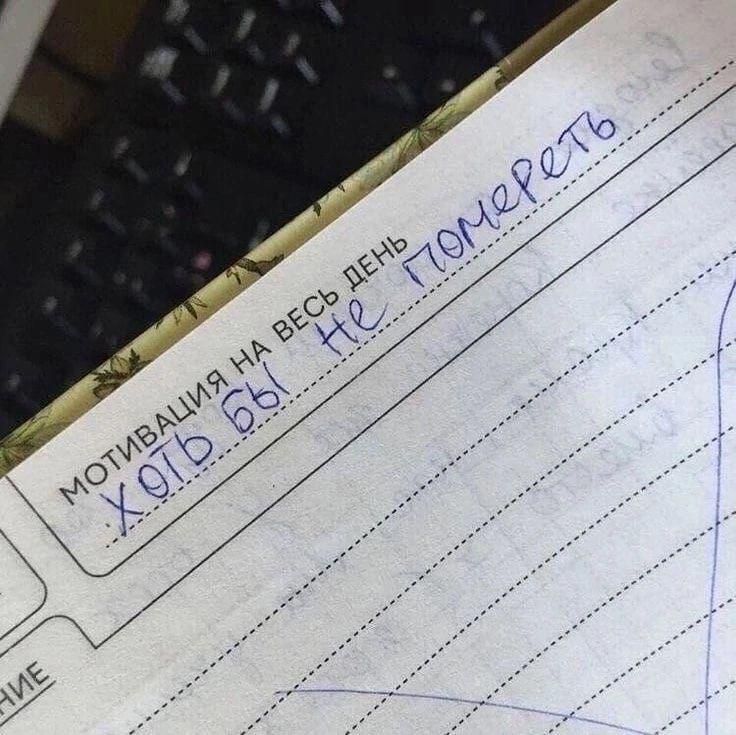 МОТИВАЦИЯ НА ВЕСЬ ДЕНЬ
ХОТЬ БЫ НЕ ПОМЕРЕТЬ
НИЕ